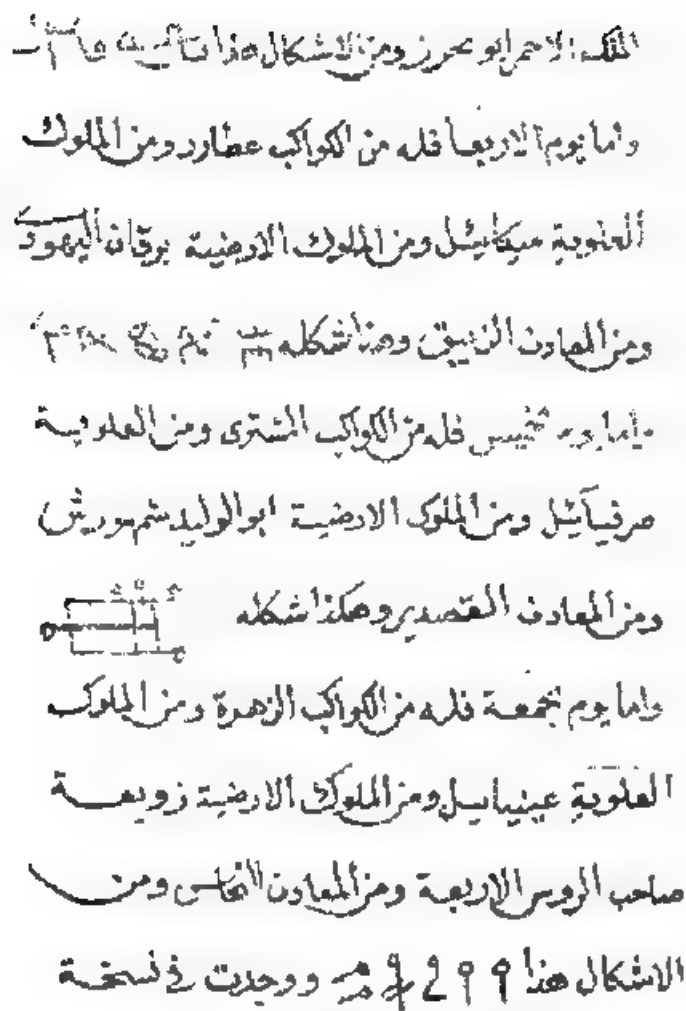 الملك الاحمر ابو محرز ومن الاشكال هذا
واما يوم الاربعا فله من الكواكب عطارد ومن الملوك
العلوية ميكاييل ومن الملوك الارضية برقان اليهودى
ومن المعادن الزيبق وهذا شكله
واما يوم الخميس فله من الكواكب المشترى ومن العلوية
صرفياييل ومن الملوك الارضية ابو الوليد شمهورش
ومن المعادن القصدير وهكذا شكله
واما يوم الجمعة فله من الكواكب الزهرة ومن الملوك
العلوية عينياييل ومن الملوك الارضية زوبعة
صاحب الروس الاربعة ومن المعادن النحاس ومن
الاشكال هذا ووجدت فى نسخة